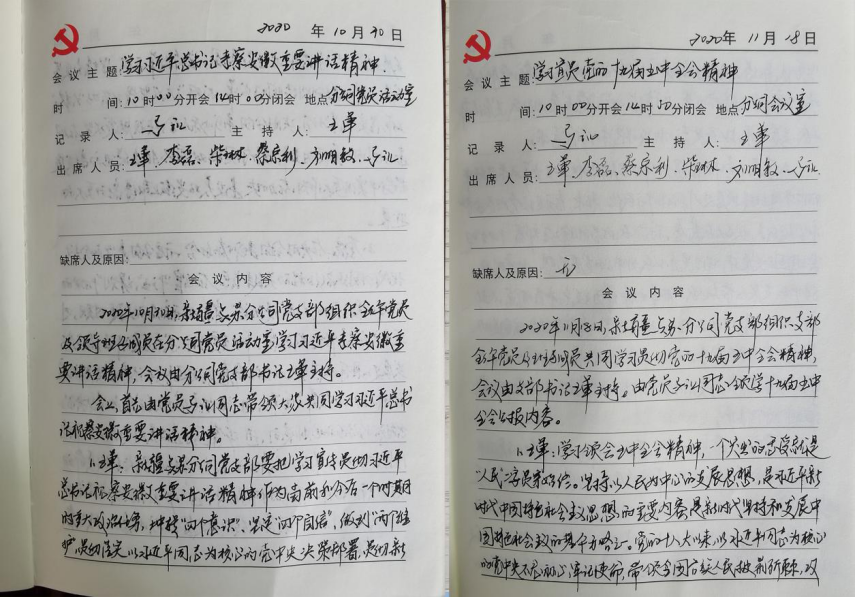 2020 年 10 月 30 日
会议主题: 学习习近平总书记考察安徽重要讲话精神.
时 间: 10 时 00 分开会 14 时 00 分闭会 地点 分公司党员活动室
记 录 人: 主 持 人: 王军
出席人员: 王军、李磊、柴琳、桑宗利、刘明毅、
缺席人及原因:
会 议 内 容
2020年10月30日,新疆分公司党支部组织全体党员
及领导班子成员在分公司党员活动室,学习习近平考察安徽重
要讲话精神,会议由分公司党支部书记王军主持。
会上,首先由党员同志带领大家共同学习习近平总书
记视察安徽重要讲话精神。
1.王军:新疆分公司党支部要把学习宣传贯彻习近平
总书记视察安徽重要讲话精神作为当前和今后一个时期
的重大政治任务,增强"四个意识"、坚定"四个自信"、做到"两个维
护",贯彻落实以习近平同志为核心的党中央决策部署,贯彻新
2020 年 11 月 18 日
会议主题: 学习贯彻党的十九届五中全会精神
时 间: 10 时 00 分开会 14 时 00 分闭会 地点 分公司会议室
记 录 人: 主 持 人: 王军
出席人员: 王军、李磊、桑宗利、柴琳、刘明毅、
缺席人及原因: 无
会 议 内 容
2020年11月18日,新疆分公司党支部组织支部
全体党员及班子成员共同学习贯彻党的十九届五中全会精神,
会议由支部书记王军主持。由党员同志领学十九届五中
全会公报内容。
1.王军:学习领会五中全会精神,一个突出的感受就是
"人民"二字贯穿始终。坚持以人民为中心的发展思想,是习近平新
时代中国特色社会主义思想的重要内容,是新时代坚持和发展中
国特色社会主义的基本方略之一。党的十八大以来,以习近平同志为核心
的党中央不忘初心、牢记使命,带领全国各族人民披荆斩棘、攻